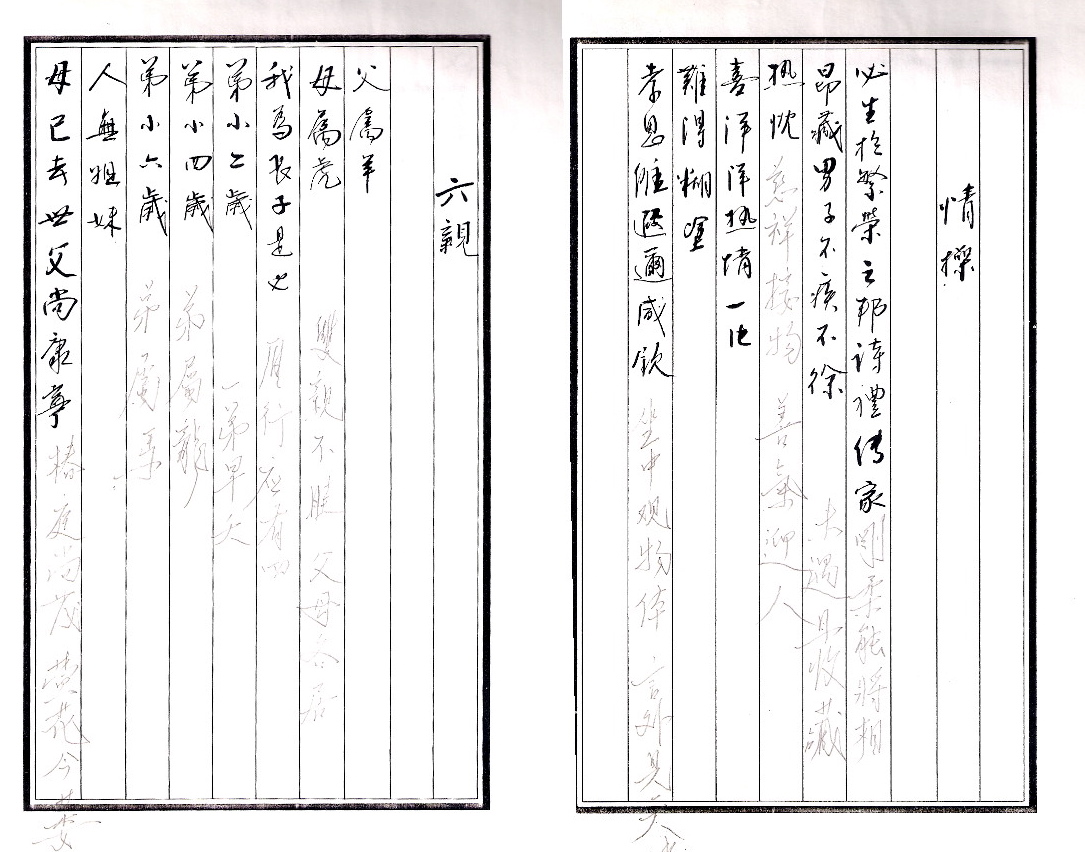 情操
必生於繁榮之邦詩禮傳家剛柔能將相
昂藏男子不疾不徐 未遇且收藏
热忱 慈祥接物 善氣迎人
喜洋洋热情一片
難得糊塗
孝思維遐邇咸欽 坐中观物体 言外見天
六親
父屬羊
母屬虎 雙親不睦 父母各居
我為長子是也 雁行应有
弟小二歲 一弟早夭
弟小四歲 弟屬龍
弟小六歲 弟屬馬
人無姐妹
母已去世父尚康寧 椿庭尚茂 萱花今